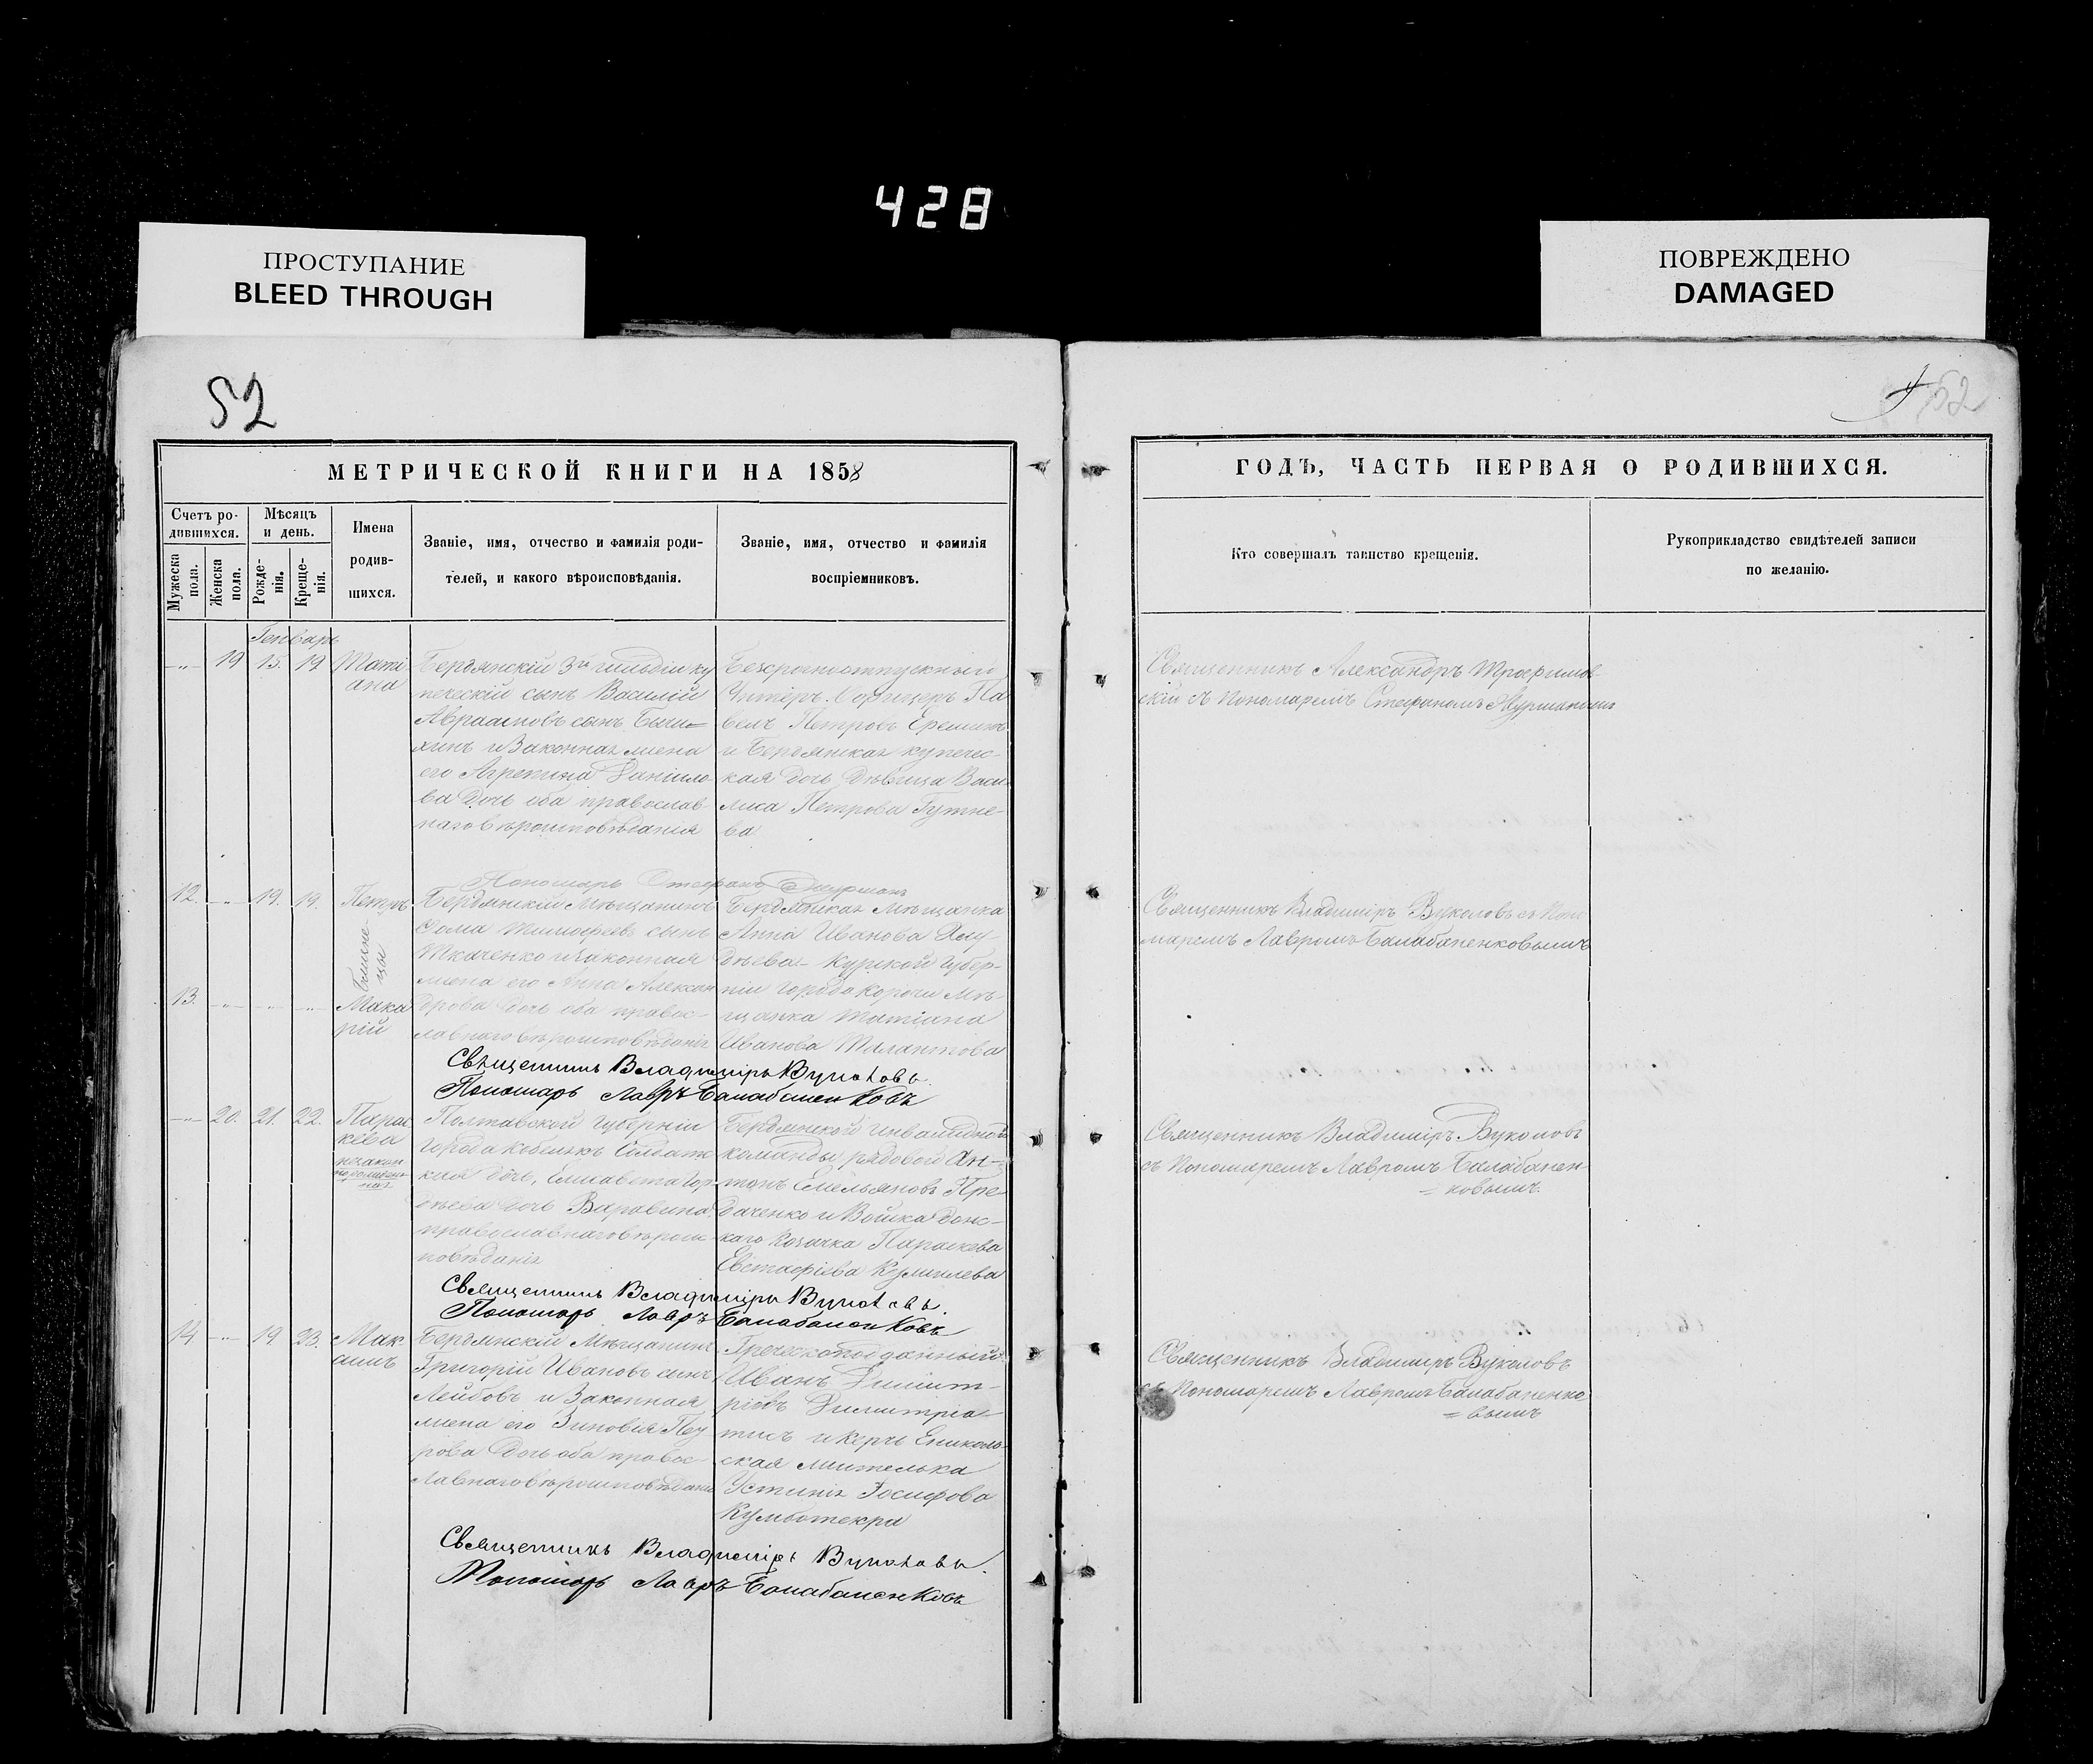 428
ПРОСТУПАНИЕ
BLEED THROUGH
ПОВРЕЖДЕНО
DAMAGED
52
52
МЕТРИЧЕСКОЙ КНИГИ НА 1858
ГОДЪ, ЧАСТЬ ПЕРВАЯ О РОДИВШИХСЯ.
Счетъ ро-
дившихся.
Мужеска пола.
Женска пола.
Мѣсяцъ
и день.
Рожде-
нія.
Креще-
нія.
Имена
родив-
шихся.
Званіе, имя, отчество и фамилія роди-
телей, и какого вѣроисповѣданія.
Званіе, имя, отчество и фамилія
воспріемниковъ.
Кто совершалъ таинство крещенія.
Рукоприкладство свидѣтелей записи
по желанію.
Генварь
19 15. 19
Тати
ана
Бердянскій 3й гильдіи ку
печескій сынъ Василій
Авраамовъ сынъ
и Законная жена
его Агрепина Даніило
ва дочь оба православ
наго вѣроисповѣданія
Павелъ Петровъ Ереминъ
и Бердянская купечес-
кая дочь дѣвица Васи
лиса Петрова
ва
Священникъ Александръ Трофимов-
скій съ Пономаремъ Стефаномъ
Пономарь Стефанъ
12. 19. 19.
Петръ
близне-
цы
13.
Мака
рій
Бердянскій Мѣщанинъ
Фома Тимофеевъ сынъ
Ткаченко и законная
жена его Анна Алексан
дрова дочь оба правос-
лавнаго вѣроисповѣданія
Бердянская Мѣщанка
Анна Иванова
Курской Губер-
ніи города Корочи Мѣ-
щанка Татіана
Иванова
Священникъ Владиміръ Вуколовъ съ Поно
маремъ Лавромъ Балабаненковымъ
Священникъ Владиміръ Вуколовъ.
Пономарь Лавръ Балабаненковъ
20. 21. 22.
Парас
кева
незакон
норожден-
ная
Полтавской Губерніи
города Кобелякъ Солдатс
кая дочь, Елисавета
дочь
православнаго вѣроис
повѣданія
Бердянской инвалидной
команды рядовой Ан-
тонъ Емельяновъ
и Войска Донс-
каго Козачка Параскева
Евстафіева
Священникъ Владиміръ Вуколовъ
съ Пономаремъ Лавромъ Балабанен-
= ковымъ.
Священникъ Владиміръ Вуколовъ.
Пономарь Лавръ Балабаненковъ
14 19 23.
Мак-
симъ
Бердянскій Мѣщанинъ
Григорій Ивановъ сынъ
и Законная
жена его Зиновія
рова дочь оба правос-
лавнаго вѣроисповѣданія
Греческоподданный
Иванъ Димит-
ріевъ Димитріа-
тисъ и Керчь Ениколь-
ская жителька
Устинія Іосифова
Священникъ Владиміръ Вуколовъ
съ Пономаремъ Лавромъ Балабаненко
= вымъ
Священникъ Владиміръ Вуколовъ.
Пономарь Лавръ Балабаненковъ